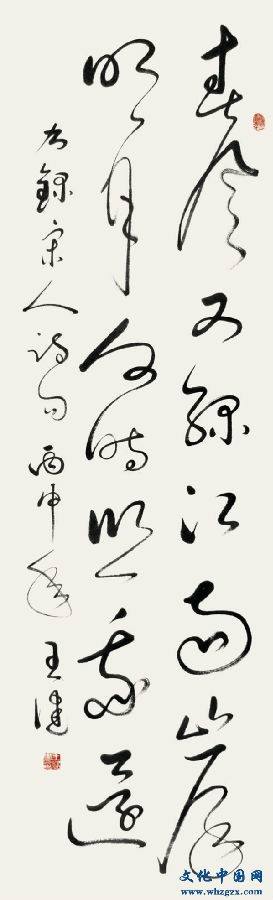 春風又綠江南岸
明月何時照我還
右錄宋人詩句 丙申年 王健
文化中国网
www.whzgzx.com